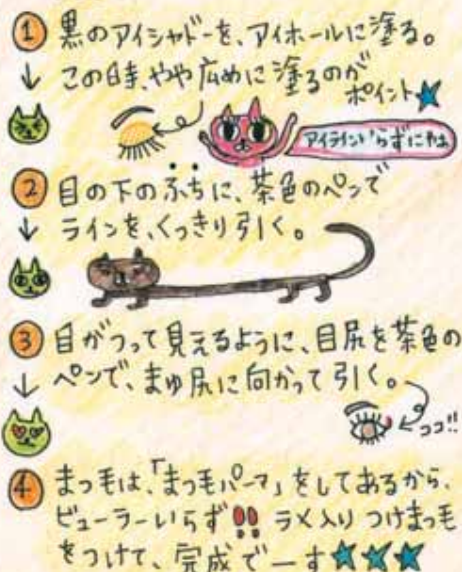 ① 黒のアイシャドーを、アイホールに塗る。
この時、やや広めに塗るのが
ポイント★
アイラインいらずにやぁ
② 目の下のふちに、茶色のペンで
ラインを、くっきり引く。
③ 目がつって見えるように、目尻を茶色の
ペンで、まゆ尻に向かって引く。
ココ!!
④ まつ毛は、「まつ毛パーマ」をしてあるから、
ビューラーいらず!! ラメ入りつけまつ毛
をつけて、完成でーす★★★